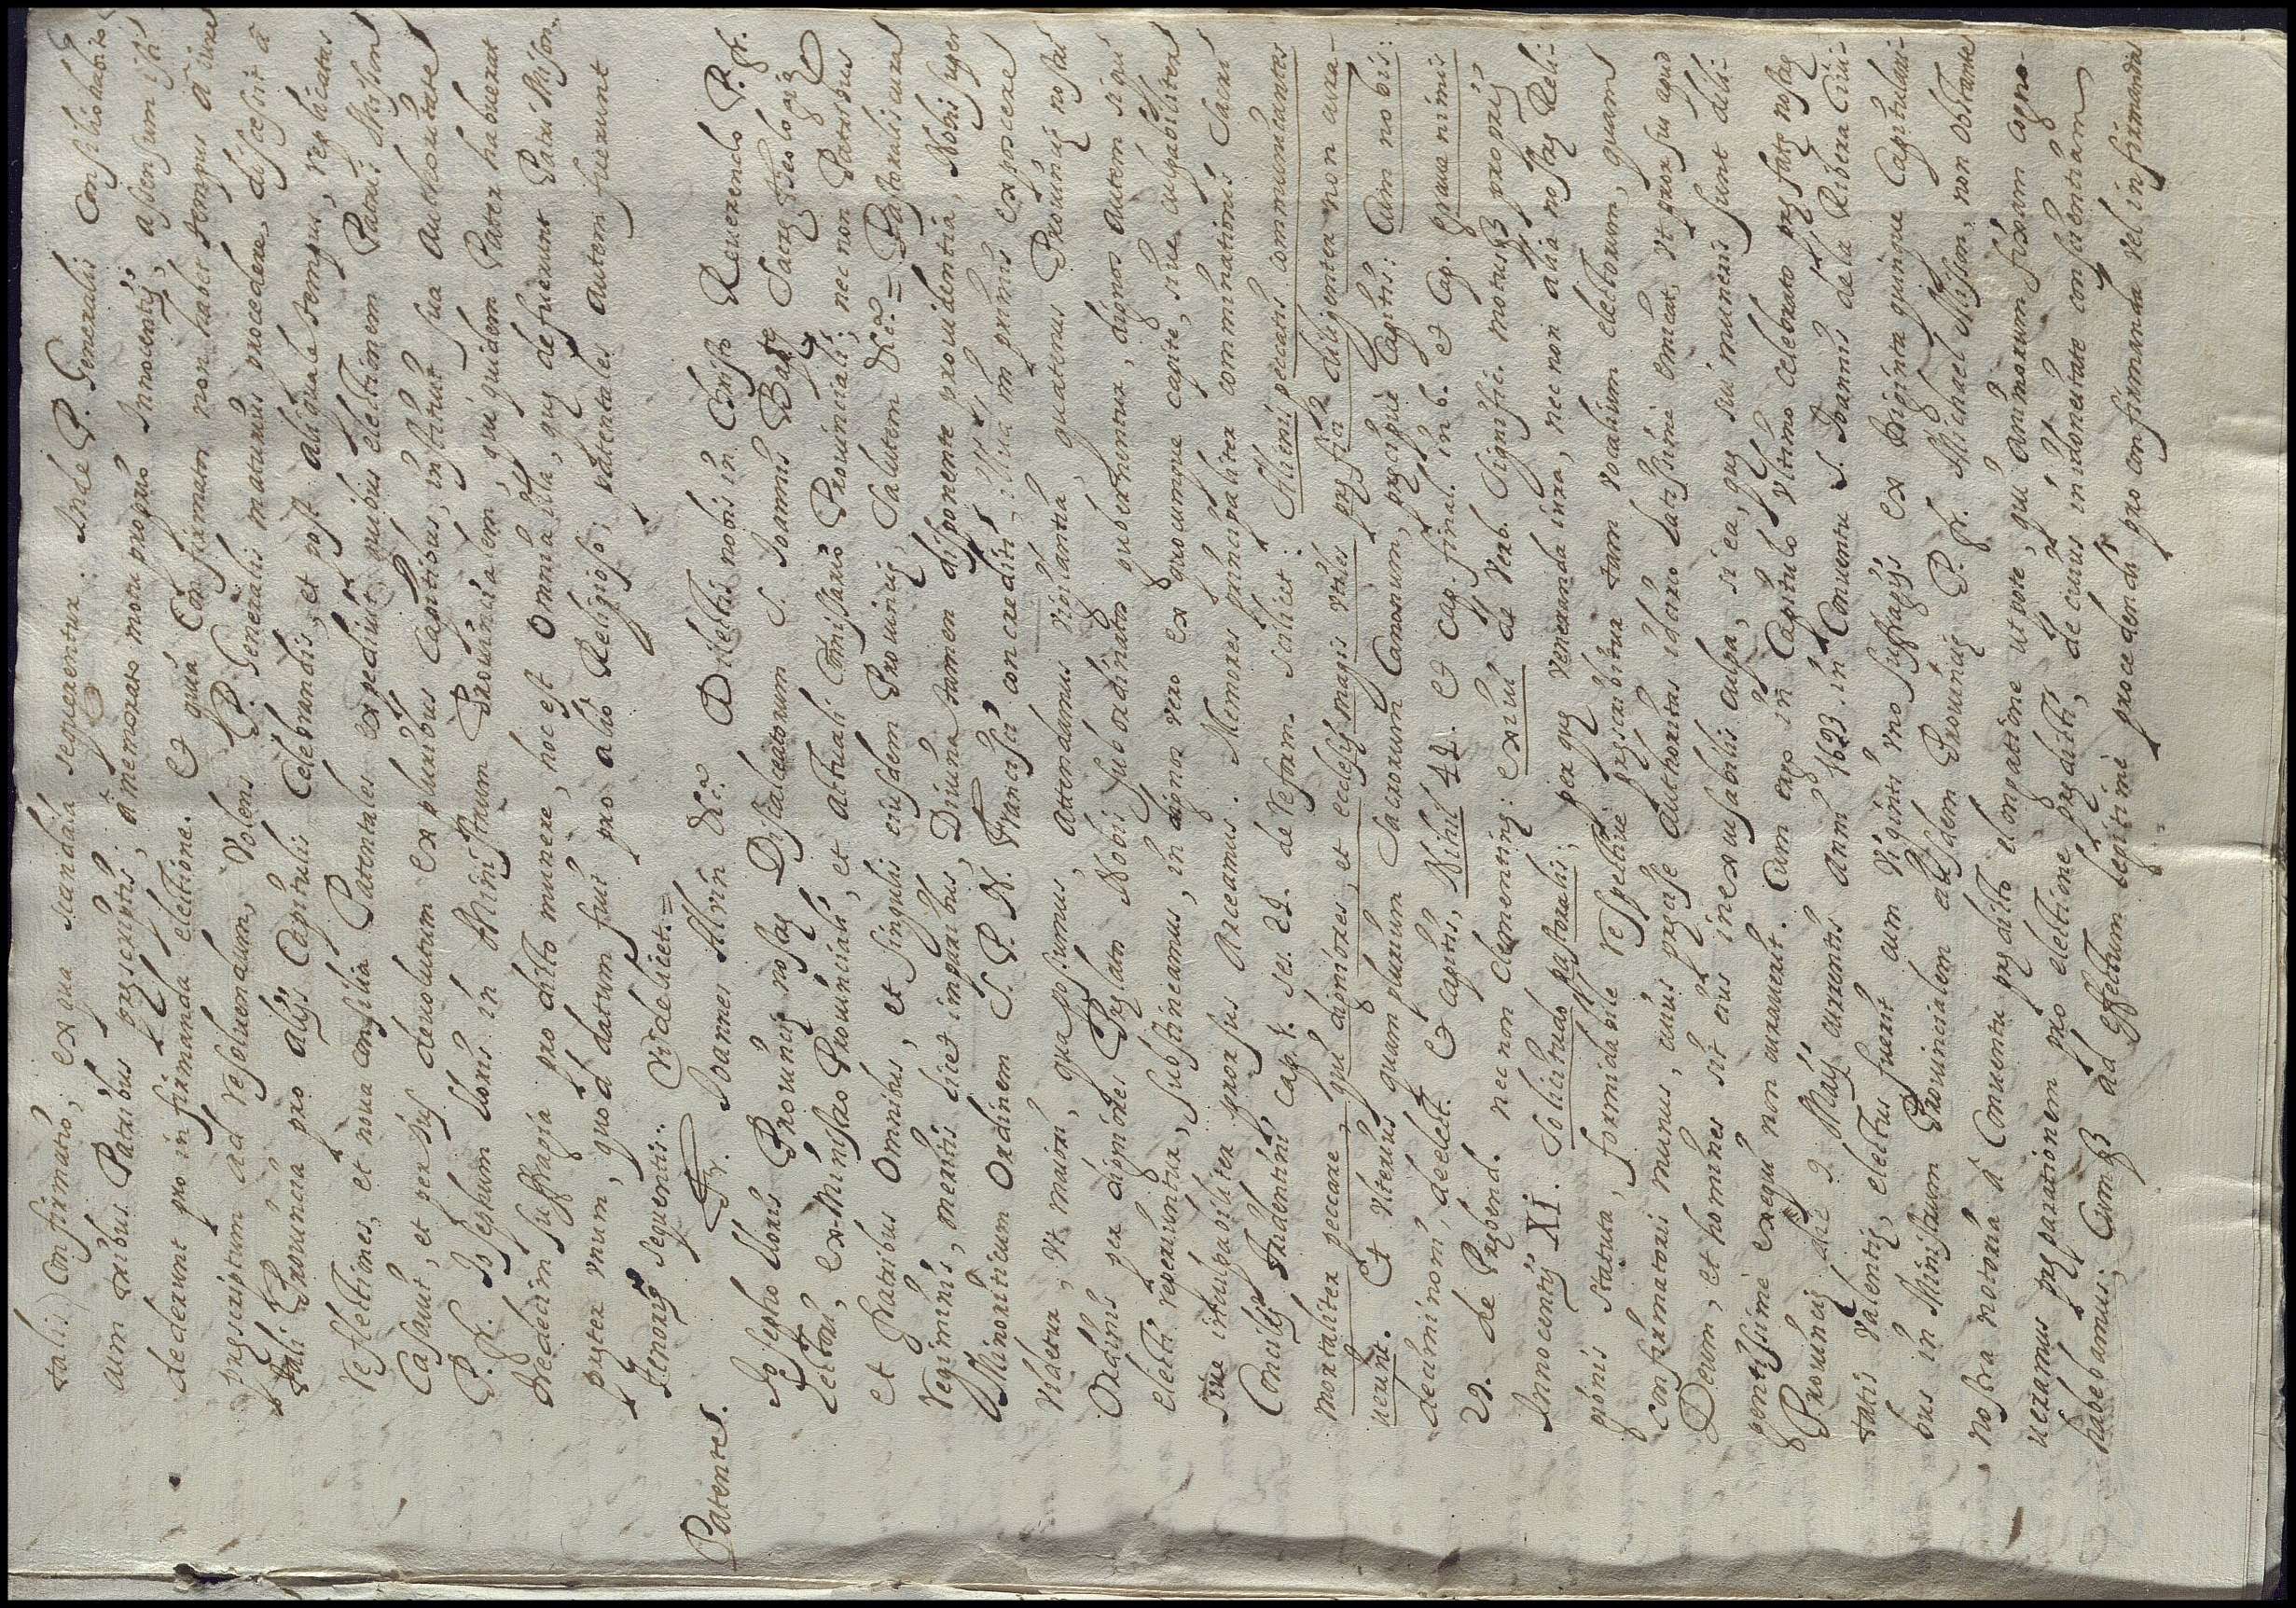 talis) confirmatio, ex qua scandala sequerentur: Inde P. Generalis consilio habito
cum tribus Patribus præscriptis, â memorato motu proprio Innocentij, assensum isti
dederunt pro infirmanda electione. Et quia Confirmator non habet tempus â iure
præscriptum ad resoluendum, volens P. Generalis maturius procedere, discessit â
tali Prouincia pro alijs Capitulis Celebrandis, et post aliquale tempus, replicatas
reflectiones, et noua consilia Patentales expediuit quibus electionem Patris Misson
Casauit, et per sus deuolutum ex pluribus capitibus, instituit sua Authoritate
P. fr. Josephum Lloris in Ministrum Prouincialem, qui quidem Pater habuerat
tredecim suffragia pro dicto munere, hoc est omnia illa, quæ defuerunt Patri Misson
præter vnum, quod datum fuit pro alio Religioso, patentales autem fuerunt
tenoris sequentis. Videlicet.=
Patentes. Fr. Joannes Alvin &cª. Dilectis nobis in Christo Reuerendo P. fr.
Josepho Lloris Prouinciæ nostræ Discalceatorum S. Joannis Baptæ Sacræ Theologiæ
Lectori, ex-Ministro Prouinciali, et actuali Comissario Prouinciali; nec non Patribus
et Fratribus omnibus, et singulis eiusdem Prouinciæ, Salutem &cª.= Pastoralis cura
regiminis, meritis licet imparibus, Diuina tamen disponente prouidentia, Nobis super
Minoriticum Ordinem S. P. N. Francisci concrediti, illud in primis exposcere
videtur, vt maiori, qua possumus, attendamus vigilantia, quatenus Prouinciis nostri
Ordinis per digniores Prælatos Nobis subordinatos gubernentur, dignos autem siqui
electi reperiuntur, sustineamus, indignos vero ex quocumque capite, siue culpabiliter
siue inculpabiliter prorsus arceamus. Memores principaliter comminationis Sacri
Concilij Tridentini, cap. 1. ses. 24. de reform. scilicet: Alienis peccatis communicantes
mortaliter peccare, qui digniores, et ecclesijs magis vtiles præfici diligenter non cura-
uerint. Et vlterius quam plurium Sacrorum Canonum, præcipue Capitis: Cum nobis:
decimi noni, de elect. Et capitis, Nihil 44. Et cap. final. in 6. et cap. graue nimis
29. de Præbend. nec non clementinæ: exiui de verb. signific. motusq3 proprij
Innocentij XI. Solicitudo pastoralis; per quæ veneranda iura, nec non alia nostræ Reli-
gionis statuta, formidabile respectiue præscribitur tam vocalium electorum, quam
confirmatori munus, cuius præcise authoritas idcirco latissime emicat, vt prorsus apud
Deum, et homines sit eius inexcusabilis culpa, si ea, quæ sui muneris sunt dili-
gentissime exequi non curauerit. Cum ergo in Capitulo vltimo celebrato præfatæ nostræ
Prouinciæ die 9 Maij currentis anni 1693. in Conuentu S. Joannis de la Ribera Ciui-
tatis Valentiæ, electus fuerit cum viginti vno suffragijs ex triginta quinque Capitulari-
bus in Ministrum Prouincialem eiusdem Prouinciæ P. fr. Michael Misson, non obstante
nostra notoria â Conuentu prædicto elongatione utpote, qui animorum fixam cogno-
ueramus præparationem pro electione prædicti, de cuius inidoneitate conscientiam
habebamus; Cumq3 ad effectum legitime procedendi pro confirmanda vel infirmanda